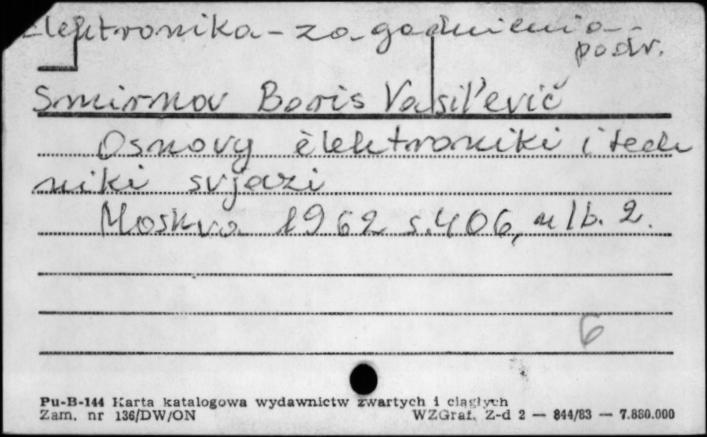 Elektronika - zagadnienia
podr.
Smirnov Boris Vasil'evič
Osnovy èlektroniki i tech
niki svjazi
Moskva 1962 s. 406, nlb. 2.
6
Pu-B-144 Karta katalogowa wydawnictw zwartych i ciągłych
Zam. nr 136/DW/ON WZGraf. Z-d 2 — 844/83 — 7.880.000